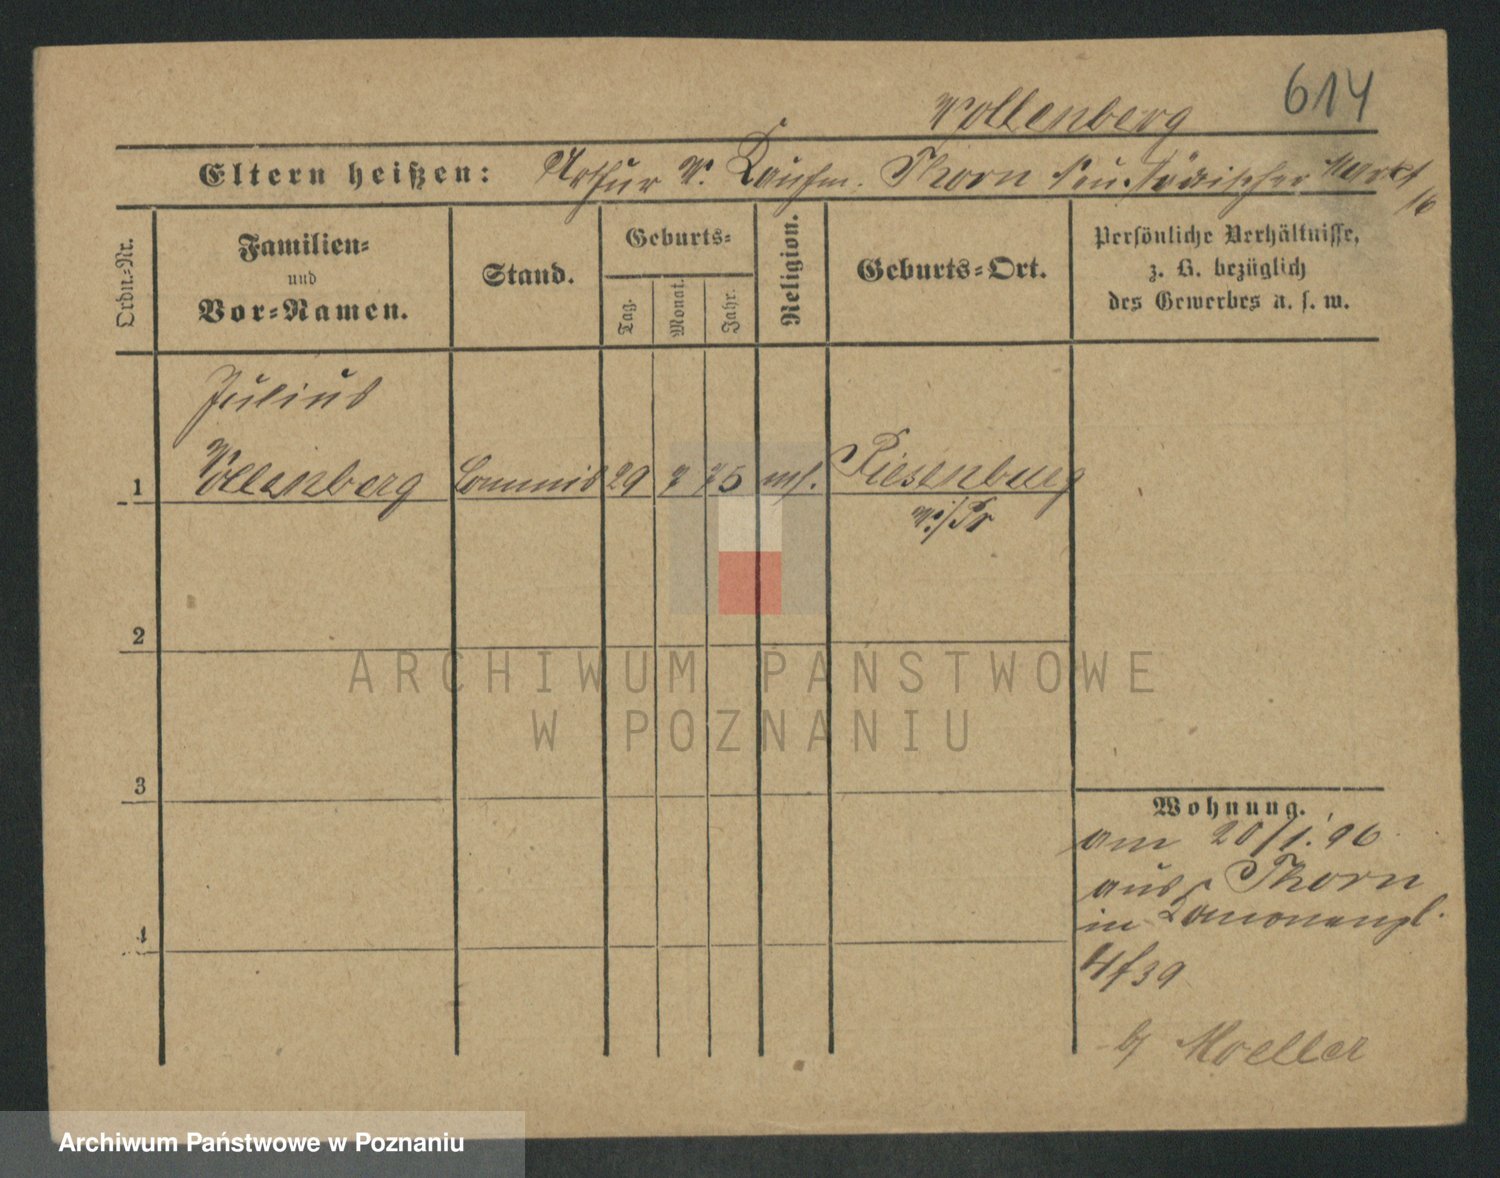 614
Wollenberg
Eltern heißen: Arthur W. Kaufm. Thorn Neustädtischer Markt
16
Ordn.-Nr.
Familien-
und
Vor-Namen.
Stand.
Geburts-
Tag.
Monat.
Jahr.
Religion.
Geburts-Ort.
Persönliche Verhältnisse,
z. B. bezüglich
des Gewerbes u. s. w.
Julius
1 Wollenberg Commis 29 7 75 Riesenburg
W./Pr
2
ARCHIWUM PAŃSTWOWE
W POZNANIU
3
Wohnung.
am 20/1. 96
aus Thorn
in Kanonenpl.
4
39
b/ Moeller
Archiwum Państwowe w Poznaniu